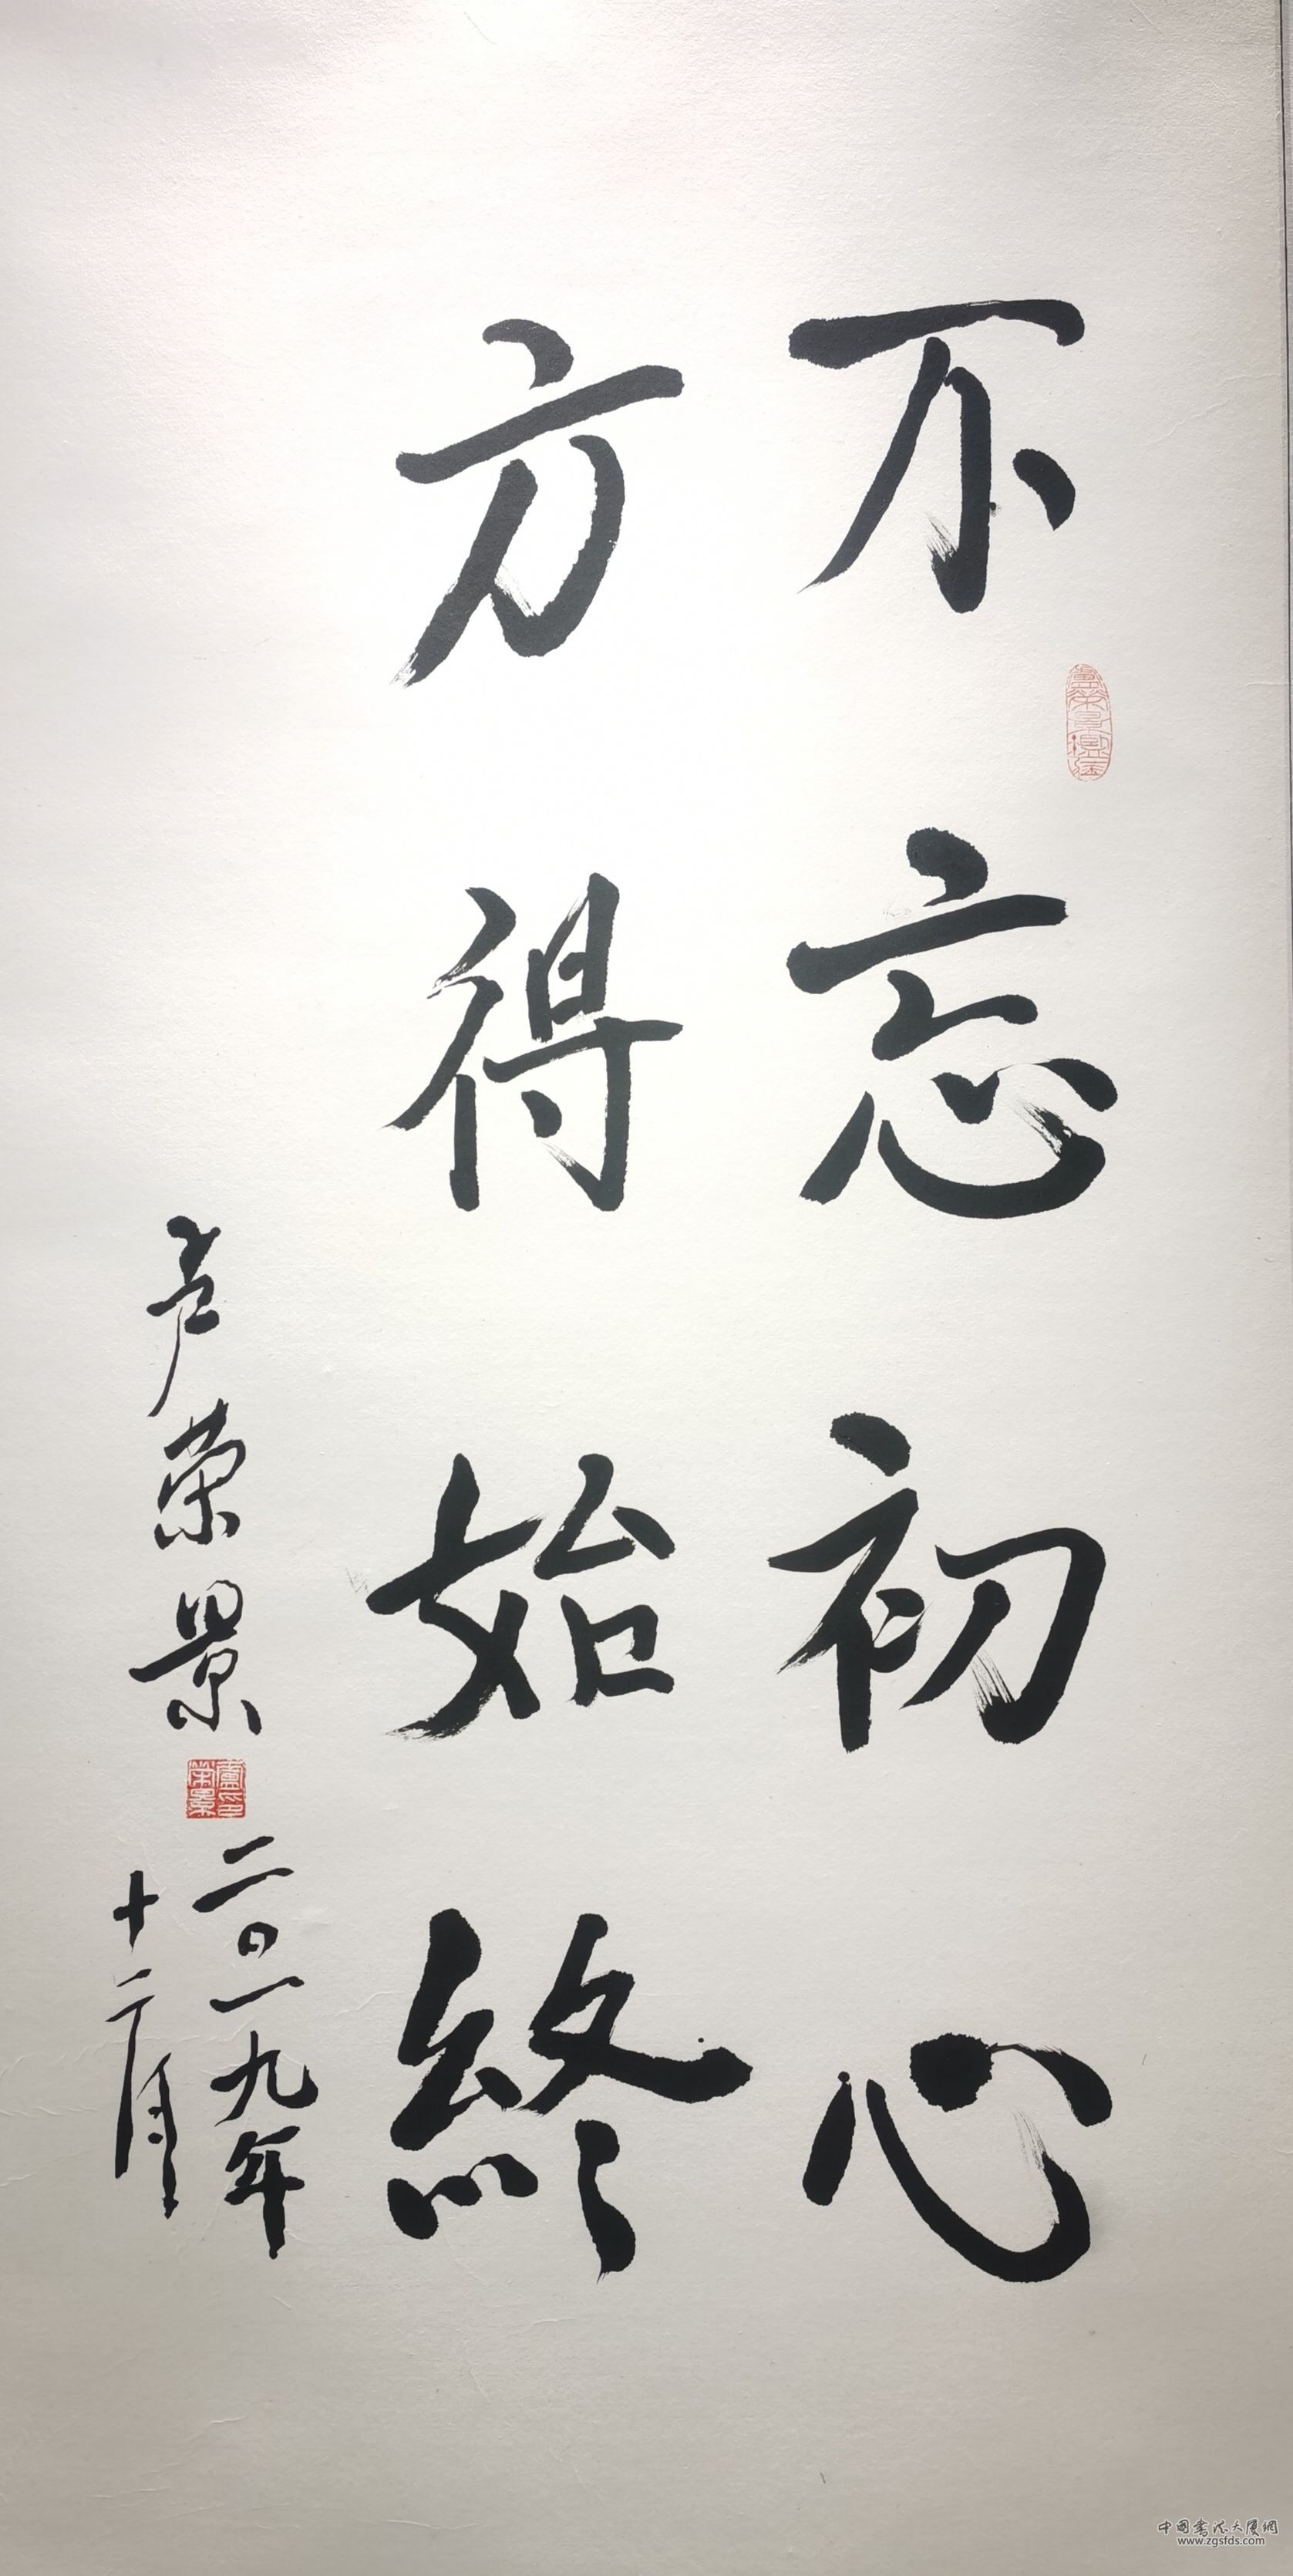 不忘初心
方得始終
卢荣景
二〇一九年
十二月
盧榮景印
中国书法大厦網
www.zgsfds.com